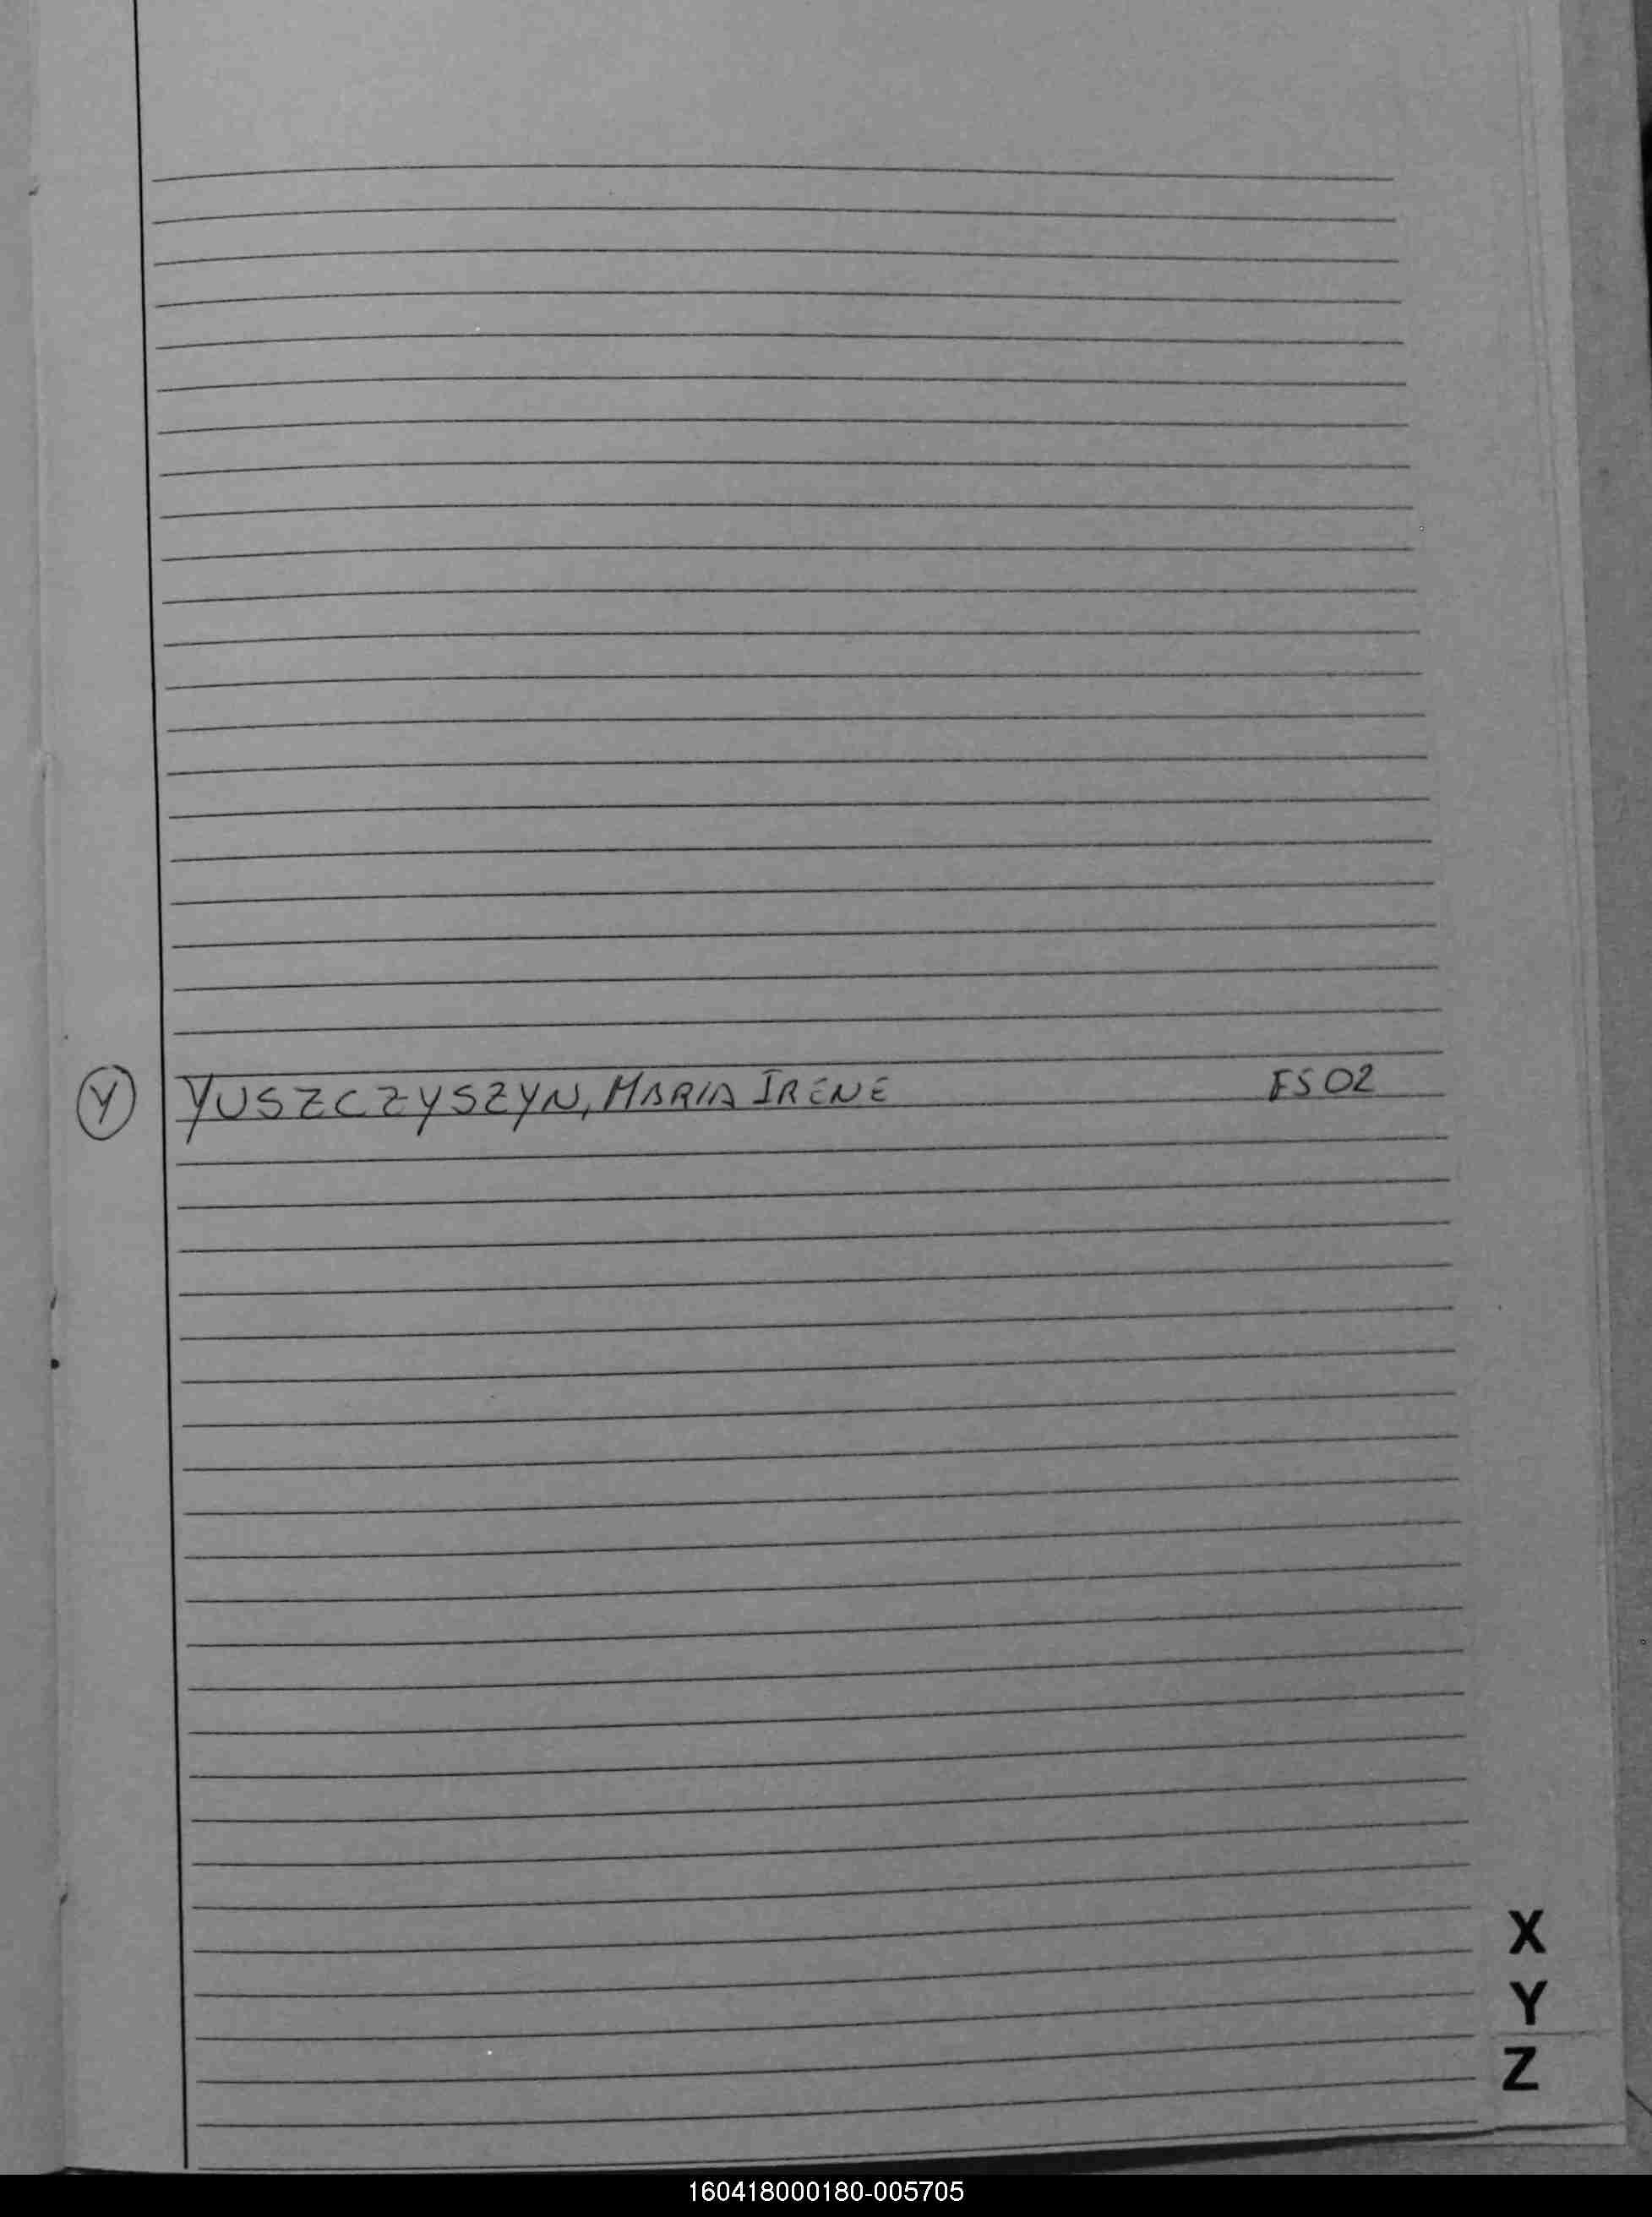 Y YUSZCZYSZYN, MARIA IRENE FS02
X
Y
Z
160418000180-005705